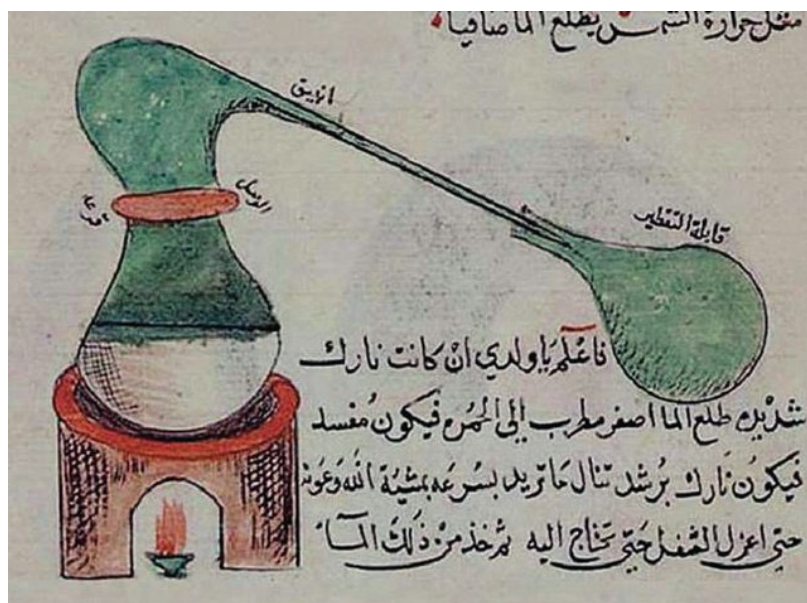 مثل حرارة الشمس يطلع الما صافيا
انبيق
الوصل
قرعه
قابلة التقطير
فاعلم يا ولدي ان كانت نارك
شديده طلع الما اصفر مطرب الى الحمره فيكون مُفسد
فيكون نارك برشد تنال ما تريد بسرعه بمشيّة الله وعونه
حتى اعزل الثفل حتى تحتاج اليه ثم خذ من ذلك المآء